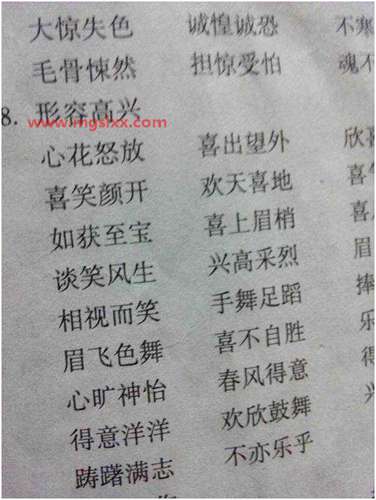 大惊失色 诚惶诚恐 不寒
毛骨悚然 担惊受怕 魂不
8. 形容高兴
www.mgslxx.com
心花怒放 喜出望外 欣
喜笑颜开 欢天喜地 喜
如获至宝 喜上眉梢 喜
谈笑风生 兴高采烈 眉
相视而笑 手舞足蹈 捧
眉飞色舞 喜不自胜 乐
心旷神怡 春风得意
得意洋洋 欢欣鼓舞
踌躇满志 不亦乐乎